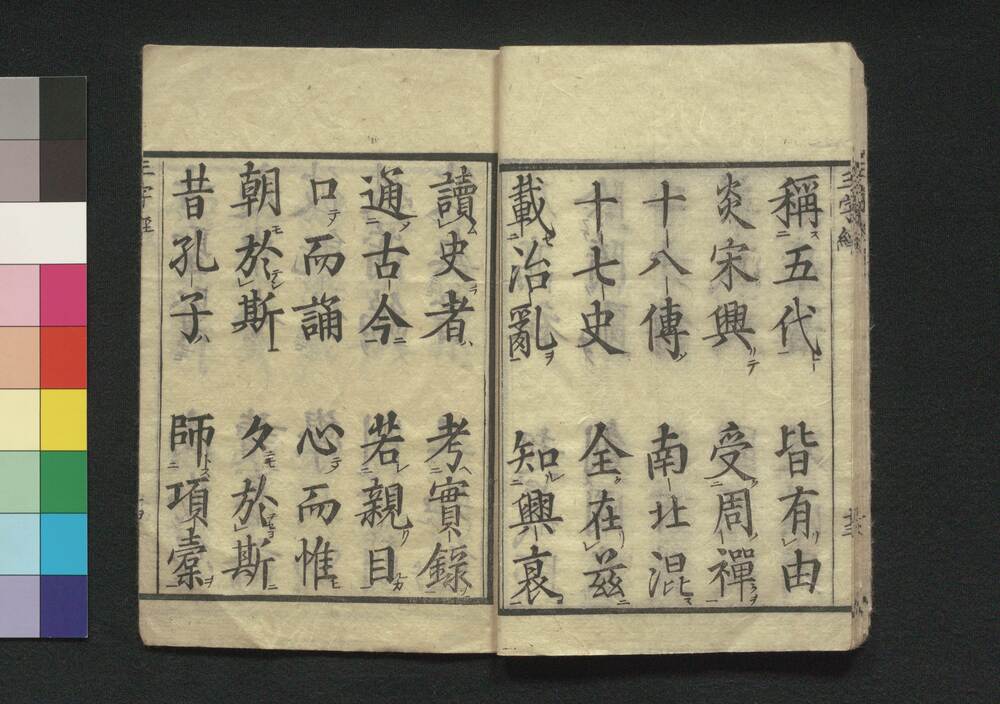 稱五代 皆有由
炎宋興 受周禪
十八傳 南北混
十七史 全在茲
載治亂 知興衰
讀史者 考實錄
通古今 若親目
口而誦 心而惟
朝於斯 夕於斯
昔孔子 師項橐
三字經